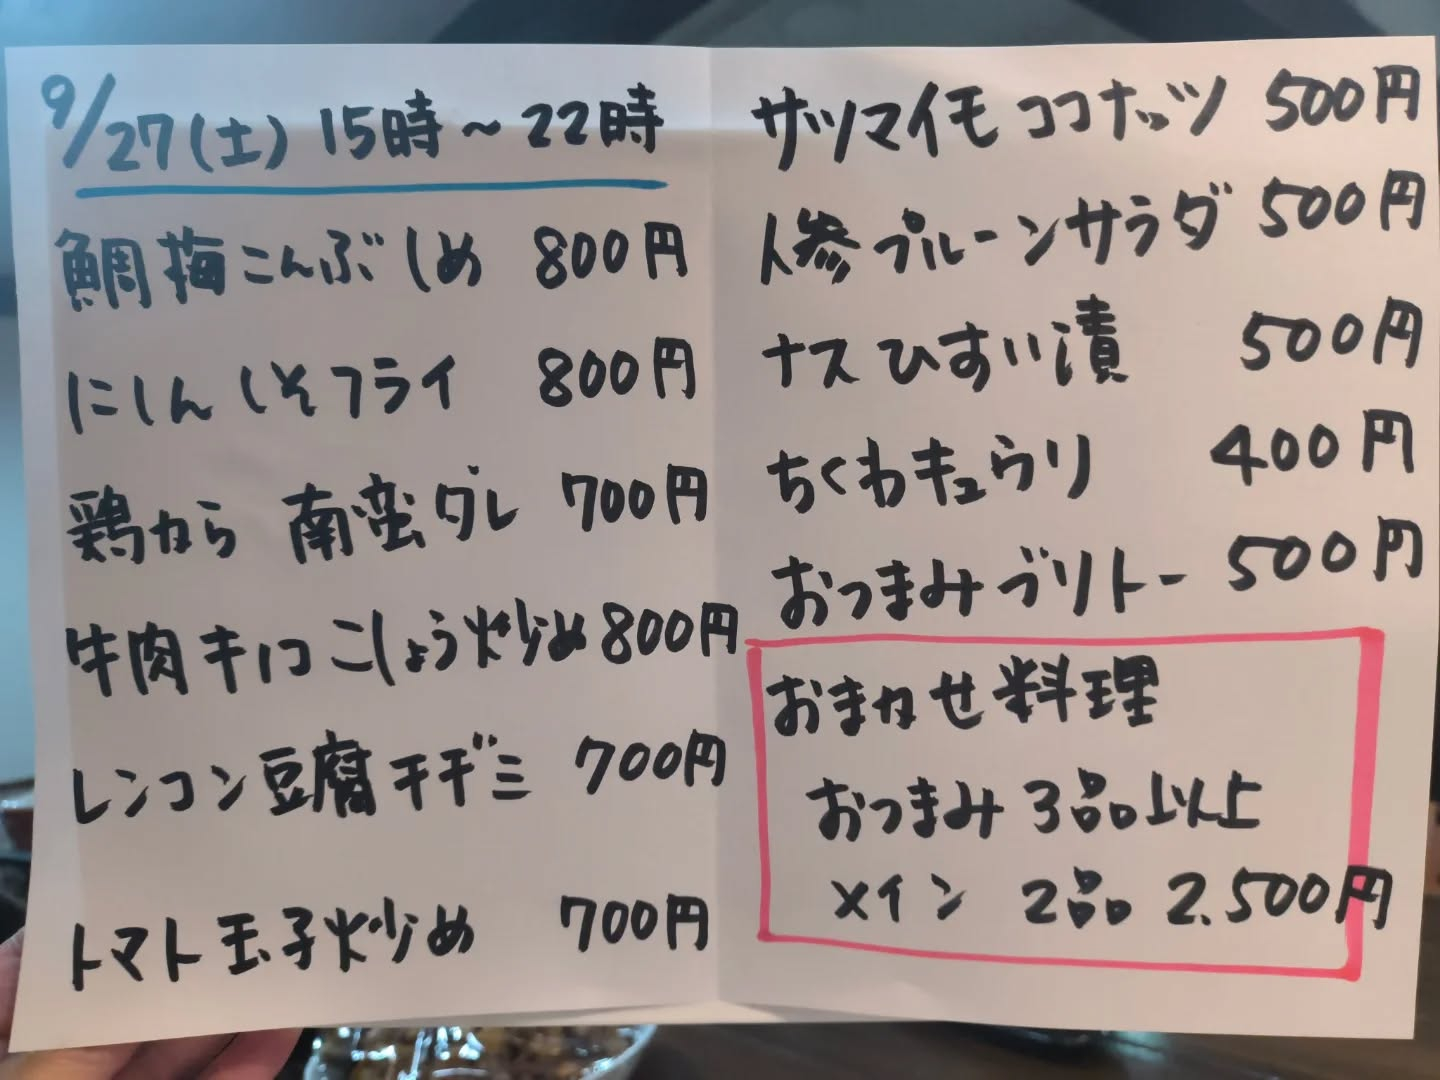 9/27(土) 15時~22時
鯛梅こんぶしめ 800円
にしんしそフライ 800円
鶏から 南蛮ダレ 700円
牛肉キノコこしょう炒め800円
レンコン豆腐チヂミ 700円
トマト玉子炒め 700円
サツマイモココナッツ 500円
人参プルーンサラダ 500円
ナスひすい漬 500円
ちくわキュウリ 400円
おつまみブリトー 500円
おまかせ料理
おつまみ 3品以上
メイン 2品 2.500円